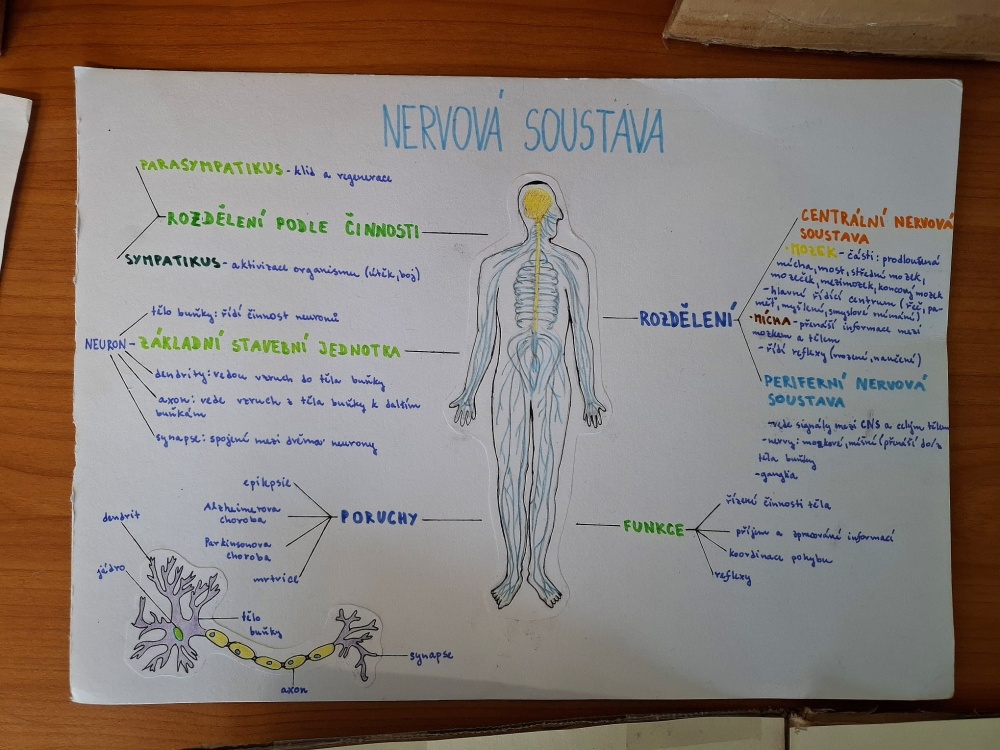 NERVOVÁ SOUSTAVA
PARASYMPATIKUS - klid a regenerace
ROZDĚLENÍ PODLE ČINNOSTI
SYMPATIKUS - aktivizace organismu (útěk, boj)
tělo buňky: řídí činnost neuronů
NEURON - ZÁKLADNÍ STAVEBNÍ JEDNOTKA
dendrity: vedou vzruch do těla buňky
axon: vede vzruch z těla buňky k dalším
buňkám
synapse: spojení mezi dvěma neurony
epilepsie
Alzheimerova
choroba
PORUCHY
Parkinsonova
choroba
mrtvice
dendrit
jádro
tělo
buňky
synapse
axon
CENTRÁLNÍ NERVOVÁ
SOUSTAVA
- MOZEK - části: prodloužená
mícha, most, střední mozek,
mozeček, mezimozek, koncový mozek
- hlavní řídící centrum (řeč, pa-
měť, myšlení, smyslové vnímání)
ROZDĚLENÍ
- MÍCHA - přenáší informace mezi
mozkem a tělem
- řídí reflexy (vrozené, naučené)
PERIFERNÍ NERVOVÁ
SOUSTAVA
- vede signály mezi CNS a celým tělem
- nervy: mozkové, míšní (přenáší do/z
těla buňky
- ganglia
řízení činnosti těla
FUNKCE
příjem a zpracování informací
koordinace pohybu
reflexy